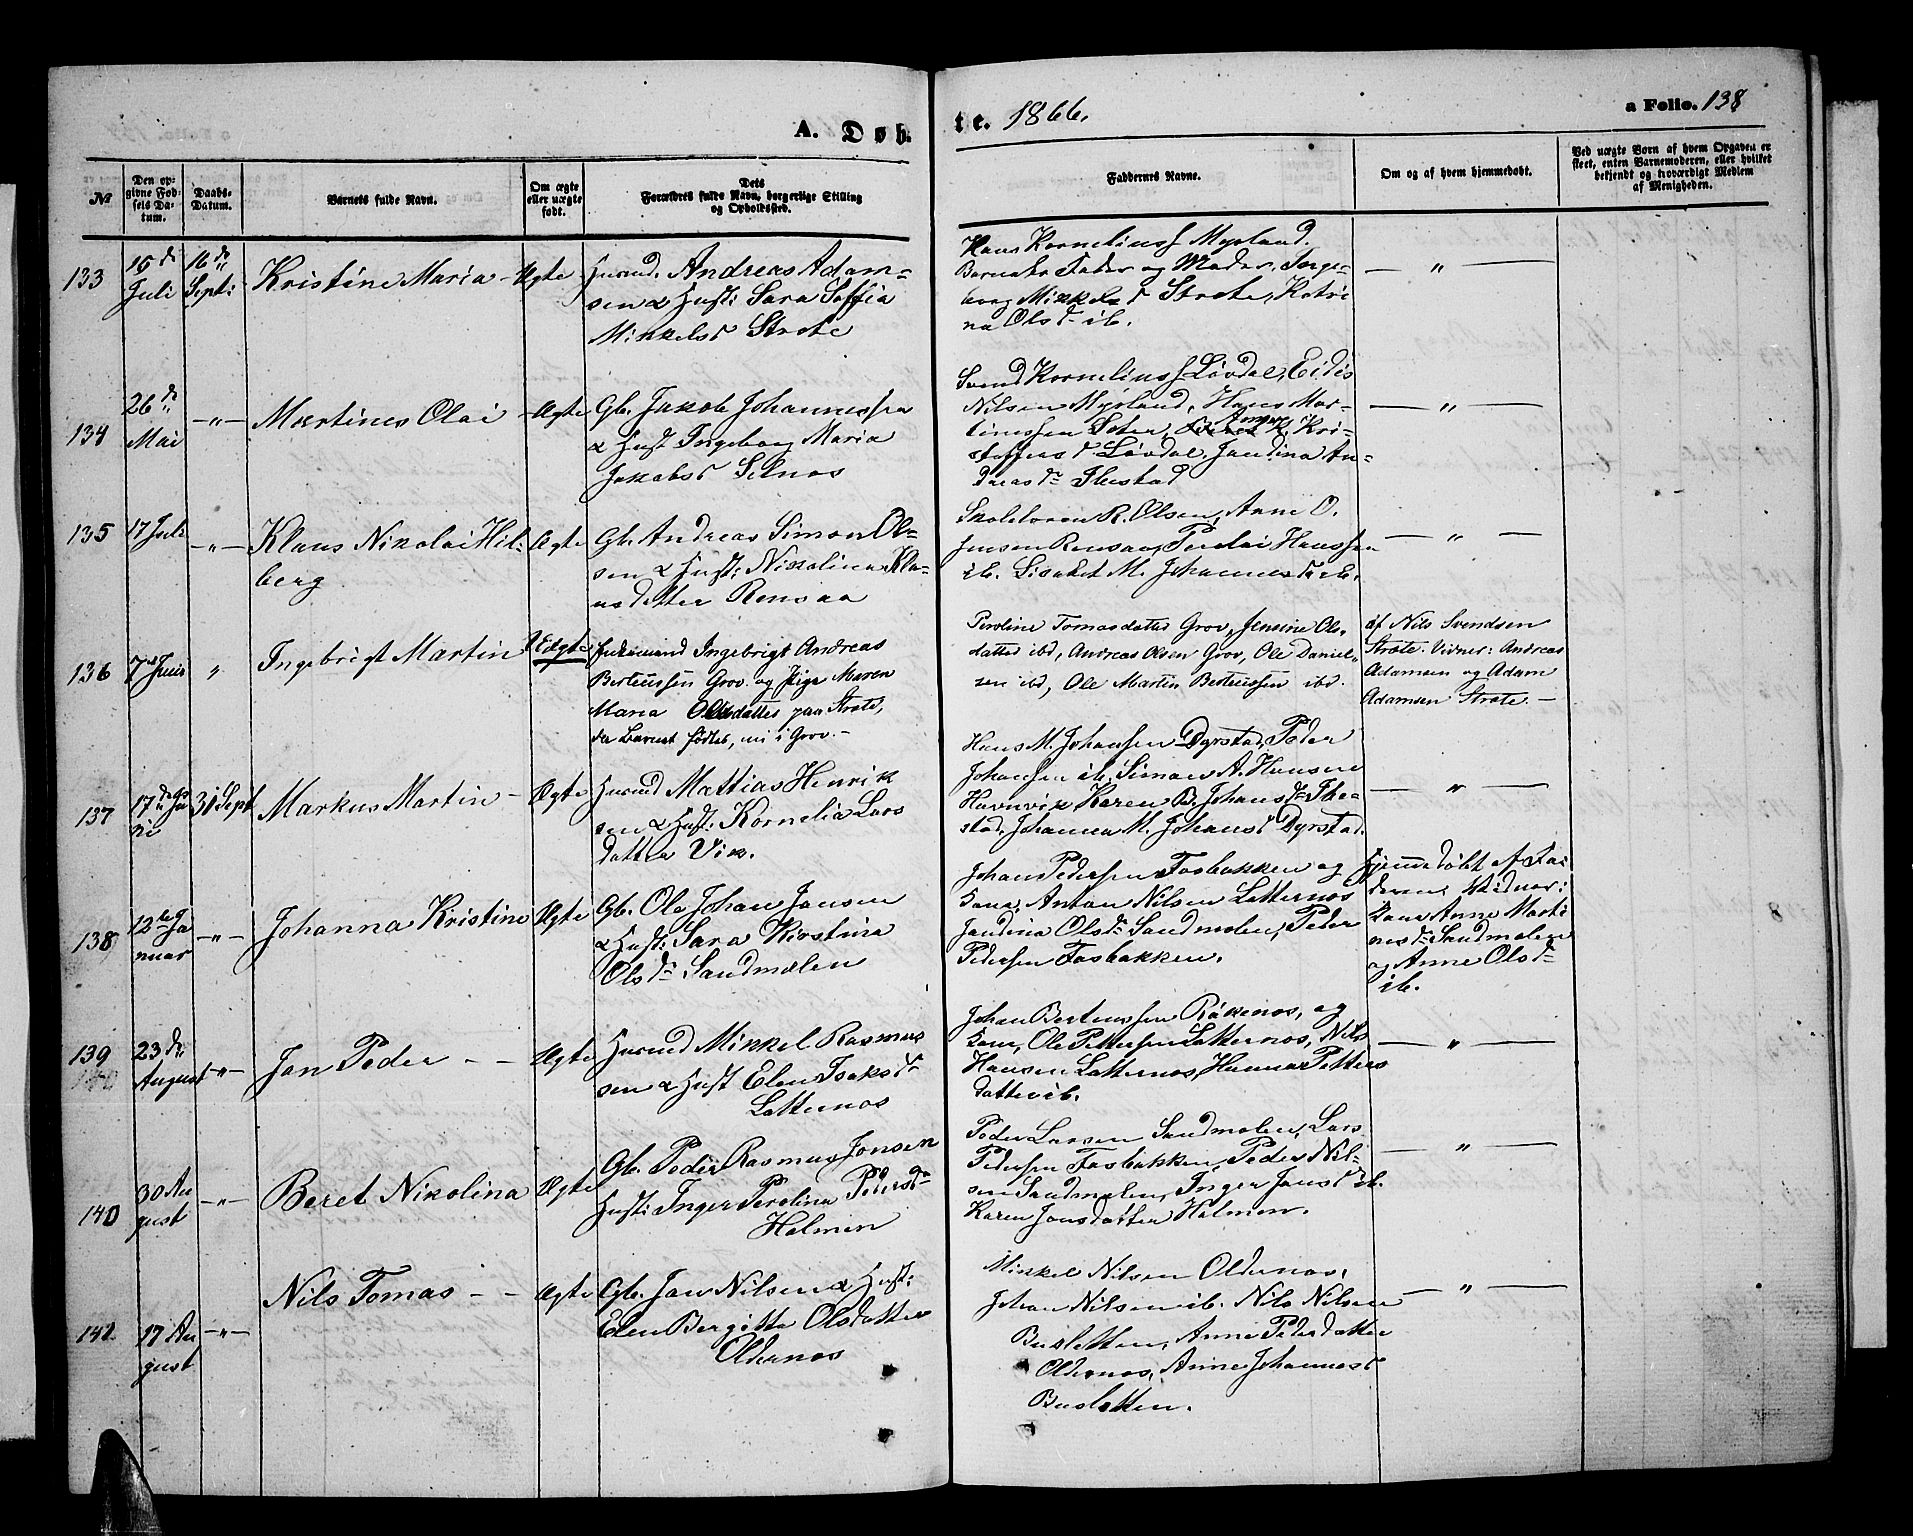 A. Døb-
te. 1866.
a Folio. 138
№
Den op-
givne Fød-
sels Da-
tum.
Daabs-
Datum.
Barnets fulde Navn.
Om ægte
eller uægte
født.
Dets
Forældres fulde Navn, borgerlige Stilling
og Opholdssted.
Faddernes Navne.
Om og af hvem hjemmedøbt.
Ved uægte Børn af hvem Opgaven er
skeet, enten Barnemoderen, eller hvilket
bekjendt og troværdigt Medlem
af Menigheden.
133
15 de
Juli
16 de
Septi
Kristine Maria -
Ægte
Husmd. Andreas Adam-
sen & Hust: Sara Soffia
Minkelsd Strote
Hans Korneliuss Myrland.
Barnets Fader og Moder, Inge-
borg Minkelsd Strote, Katri
na Olsdr ib.
— " —
134
26 de
Mai
—"—
Martines Olai
Ægte
Gb. Jakob Johannessen
& Hust Ingeborg Maria
Jakobsd Selnos
Svend Korneliuss Løvdal, Eidis
Nilsen Myrland, Hans Mar-
tinussen Soter, Kri-
stoffersd Løvdal, Jandina An-
dreasdr Ilustad
— " —
135
17 Juli
—"—
Klaus Nikolai Hil-
berg
Ægte
Gb. Andreas Simon Ol-
sen & Hust: Nikolina Kla-
usdatter Rensaa
Skolelæren R. Olsen, Anne O.
Jensen Rensaa, Perdai Hanssen
ib. Lisabet M. Johannesdr ib.
— " —
136
7 de Juni
"
Ingebrigt Martin
Uægte
Ungemand Ingebrigt Andreas
Berteussen Grov. og Pige Maren
Maria Olsdatter paa Strote,
da Barnet fødtes, nu i Grov. -
Peroline Tomasdatter Grov, Jensine Ols-
datter ibd, Andreas Olsen Grov, Ole Daniel-
sen ibd, Ole Martin Berteussen ibd.
af Nils Svendsen
Strote. Vidner: Andreas
Adamsen og Adam
Adamsen Strote. -
137
31 Sept
Markus Martin -
Ægte
Husmd Mattias Henrik
sen & Hust: Kornelia Lars
datter Vik.
Hans M. Johansen Dyrstad, Peder
Johansen ib. Simon A. Hansen
Havnvik Karen B. Johansdr Ille-
stad, Johanna M. Johansd Dyrstad.
— " —
138
12 te Ja
nuar
—"—
Johanna Kristine
Ægte
Gb. Ole Johan Jansen
& Hust: Sara Kirstina
Olsdr Sandmolen
Johan Pedersen Fosbakken og
Kone, Anton Nilsen Latternos
Jandina Olsdr Sandmolen, Peder
Pedersen Fosbakken.
Hjemmedøbt af Fa-
deren, Vidner:
Kone Anne Marti
nusdr Sandmolen
og Anne Olsdr
ib.
139
23 de
August
—"—
Jan Peder - -
Ægte
Husmd Minkel Rasmus
sen & Hust Elen Isaksdr
Latternos
Johan Berteussen Røkenos, og
Kone, Ole Pettersen Latternos, Nils
Hansen Latternos, Hanna Petters
datter ib.
— " —
140
30 Au
gust
—"—
Beret Nikolina
Ægte
Gb. Peder Rasmus Jonsen
Hust: Inger Perolina Pedersdr
Holmen
Peder Larsen Sandmolen, Lars
Pedersen Fosbakken, Peder Nil-
sen Sandmolen, Inger Jansd ib.
Karen Jonsdatter Holmen.
— " —
141
17 Au
gust
—"—
Nils Tomas - -
Ægte
Gb. Jan Nilsen & Hust:
Elen Bergitte Olsdatter
Oldernos
Minkel Nilsen Oldernos,
Johan Nilsen ib. Nils Nilsen
Busletten, Anne Pedersdatter
Oldernos, Anne Johannesd
Busletten.
— " —